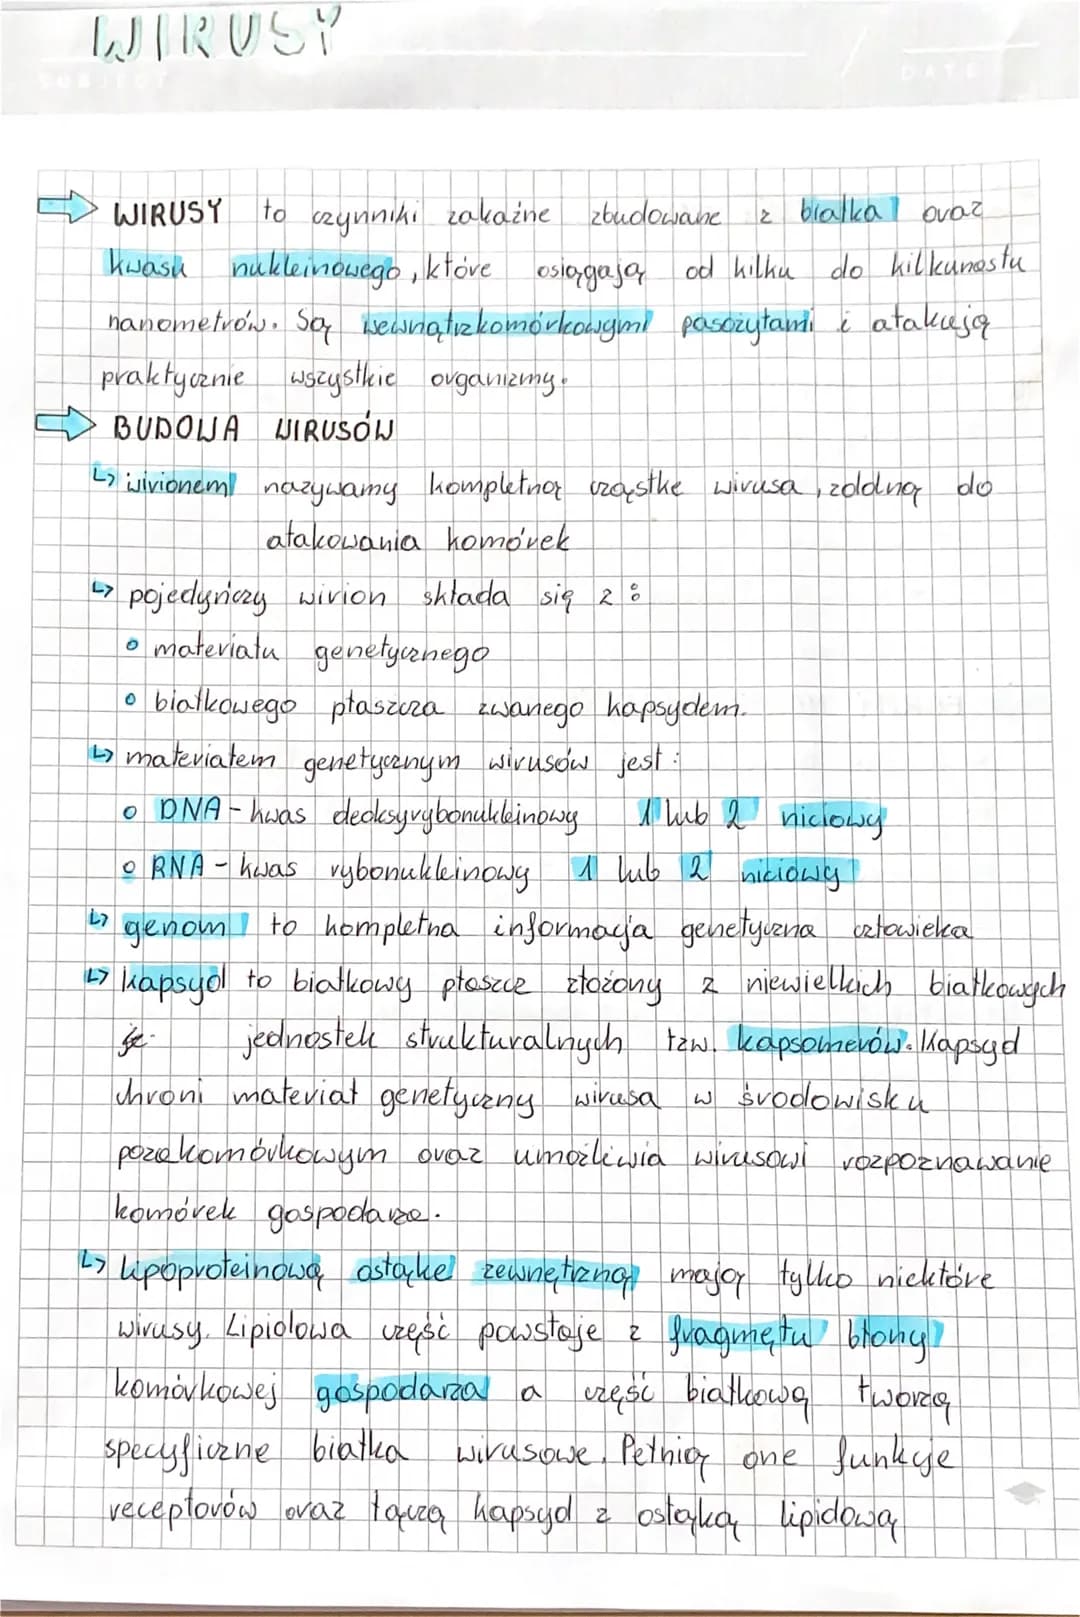 WIRUSY
SUBJECT
DATE
WIRUSY to czynniki zakaźne zbudowane z białka oraz
kwasu nukleinowego, które osiągają od kilku do kilkunastu
nanometrów. Są wewnątrzkomórkowymi pasożytami i atakują
praktycznie wszystkie organizmy.
BUDOWA WIRUSÓW
wirionem nazywamy kompletną cząstkę wirusa, zdolną do
atakowania komórek
pojedyńczy wirion składa się z:
materiału genetycznego
białkowego płaszcza zwanego kapsydem.
materiałem genetycznym wirusów jest:
DNA - kwas deoksyrybonukleinowy 1 lub 2 niciowy
RNA - kwas rybonukleinowy 1 lub 2 niciowy
genom to kompletna informacja genetyczna człowieka
kapsyd to białkowy płaszcz złożony z niewielkich białkowych
jednostek strukturalnych tzw. kapsomerów. Kapsyd
chroni materiał genetyczny wirusa w środowisku
pozakomórkowym oraz umożliwia wirusowi rozpoznawanie
komórek gospodarza.
lipoproteinową osłąkę zewnętrzną mają tylko niektóre
wirusy. Lipidowa część powstaje z fragmętu błony
komórkowej gospodarza a część białkową tworzą
specyficzne białka wirusowe. Pełnią one funkcje
receptorów oraz łączą kapsyd z osłąką lipidową